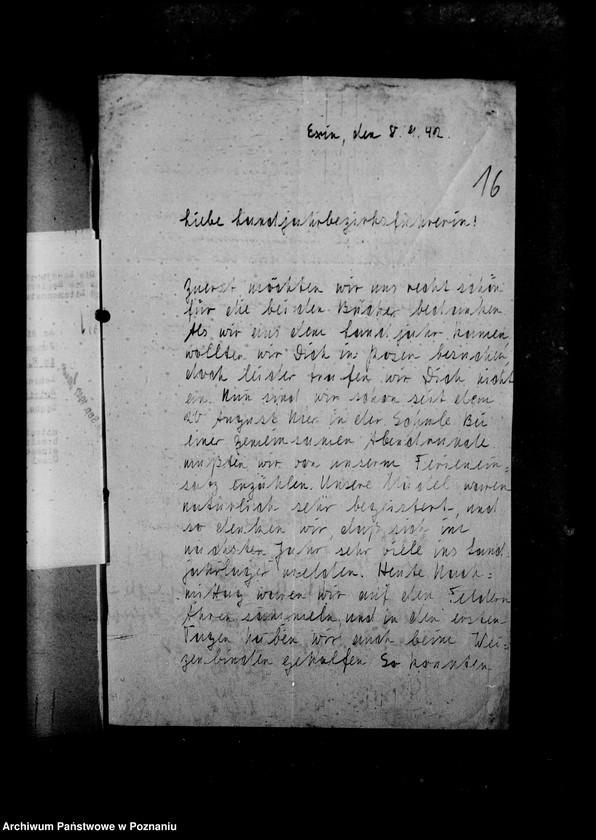 Exin, den 8.9.42.
16
Liebe Landjahrbezirksführerin!
Zuerst möchten wir uns recht schön
für die beiden Bücher bedanken
Als wir aus dem Landjahr kamen,
wollten wir Dich in Posen besuchen,
doch leider trafen wir Dich nicht
ein. Nun sind wir schon seit dem
20 August hier in der Schule Bei
einer gemeinsamen Abendrunde
mußten wir von unserm Ferienein-
satz erzählen. Unsere Mädel waren
natürlich sehr begeistert, und
so denken wir, daß sich im
nächsten Jahr sehr viele ins Land-
jahrlager melden. Heute Nach-
mittag waren wir auf den Feldern
Ähren sammeln, und in den ersten
Tagen haben wir auch beim Wei-
zenbinden geholfen So konnten
Archiwum Państwowe w Poznaniu